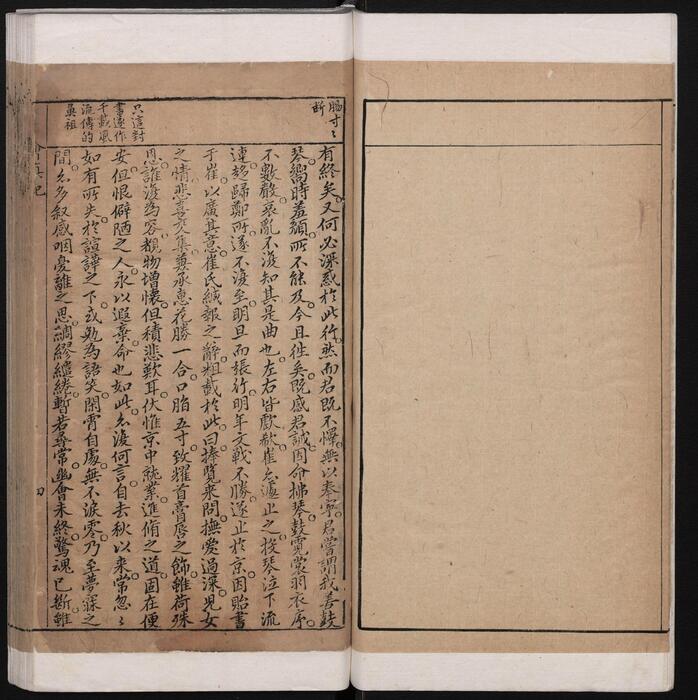 腸寸〻
斷
有終矣又何必深感於此行然而君既不懌無以奉寧君嘗謂我善鼓
琴嚮時羞顏所不能及今且徃矣既感君誠因命拂琴鼓霓裳羽衣序
不數聲哀亂不復知其是曲也左右皆歔欷崔亦遽止之投琴泣下流
連趍歸鄭所遂不復至明旦而張行明年文戰不勝遂止於京因貽書
于崔以廣其意崔氏緘報之辭粗載於此曰捧覽來問撫愛過深兒女
之情悲喜交集兼承惠花勝一合口脂五寸致耀首膏唇之飾雖荷殊
恩誰復為容覩物增懷但積悲歎耳伏惟京中就業進脩之道固在便
安但恨僻陋之人永以遐棄命也如此亦復何言自去秋以來常忽〻
如有所失於諠譁之下或勉為語笑閑宵自處無不淚零乃至夢寐之
間亦多叙感咽憂離之思綢繆繾綣暫若尋常幽會未終驚魂已斷雖
只這封
書遂作
千載風
流傳的
奠祖
會真記
四